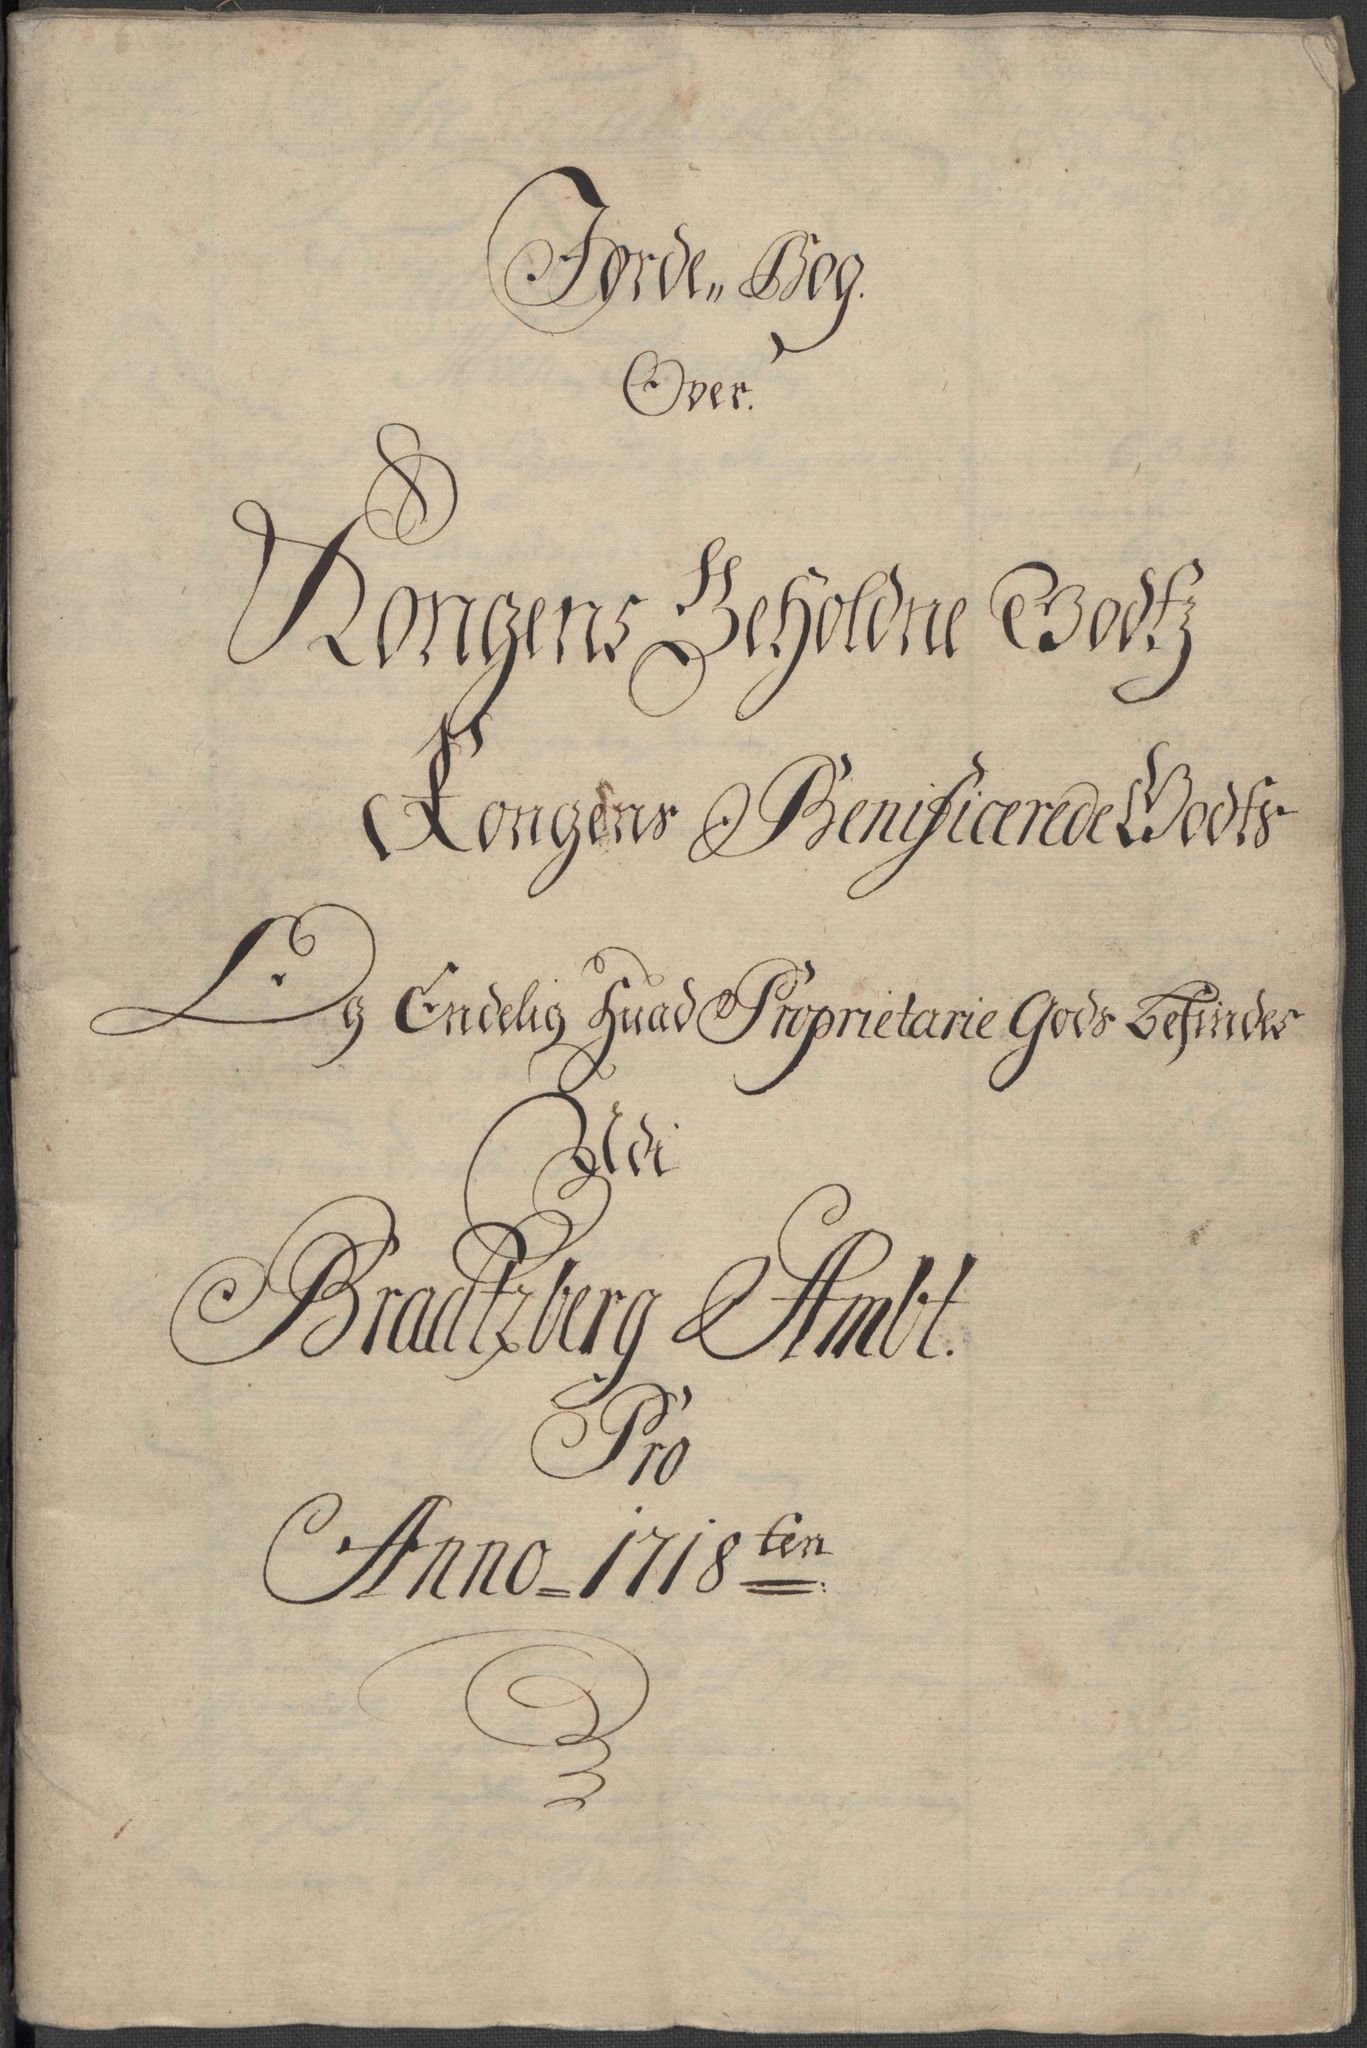 Jorde„ Bog.
Over.
Kongens Beholdne Godtz
Kongens Benificerede Godts
Og Endelig Huad Proprietarie Gods befindes
Udi
Bradtzberg Ambt.
Pro
Anno = 1718 ten